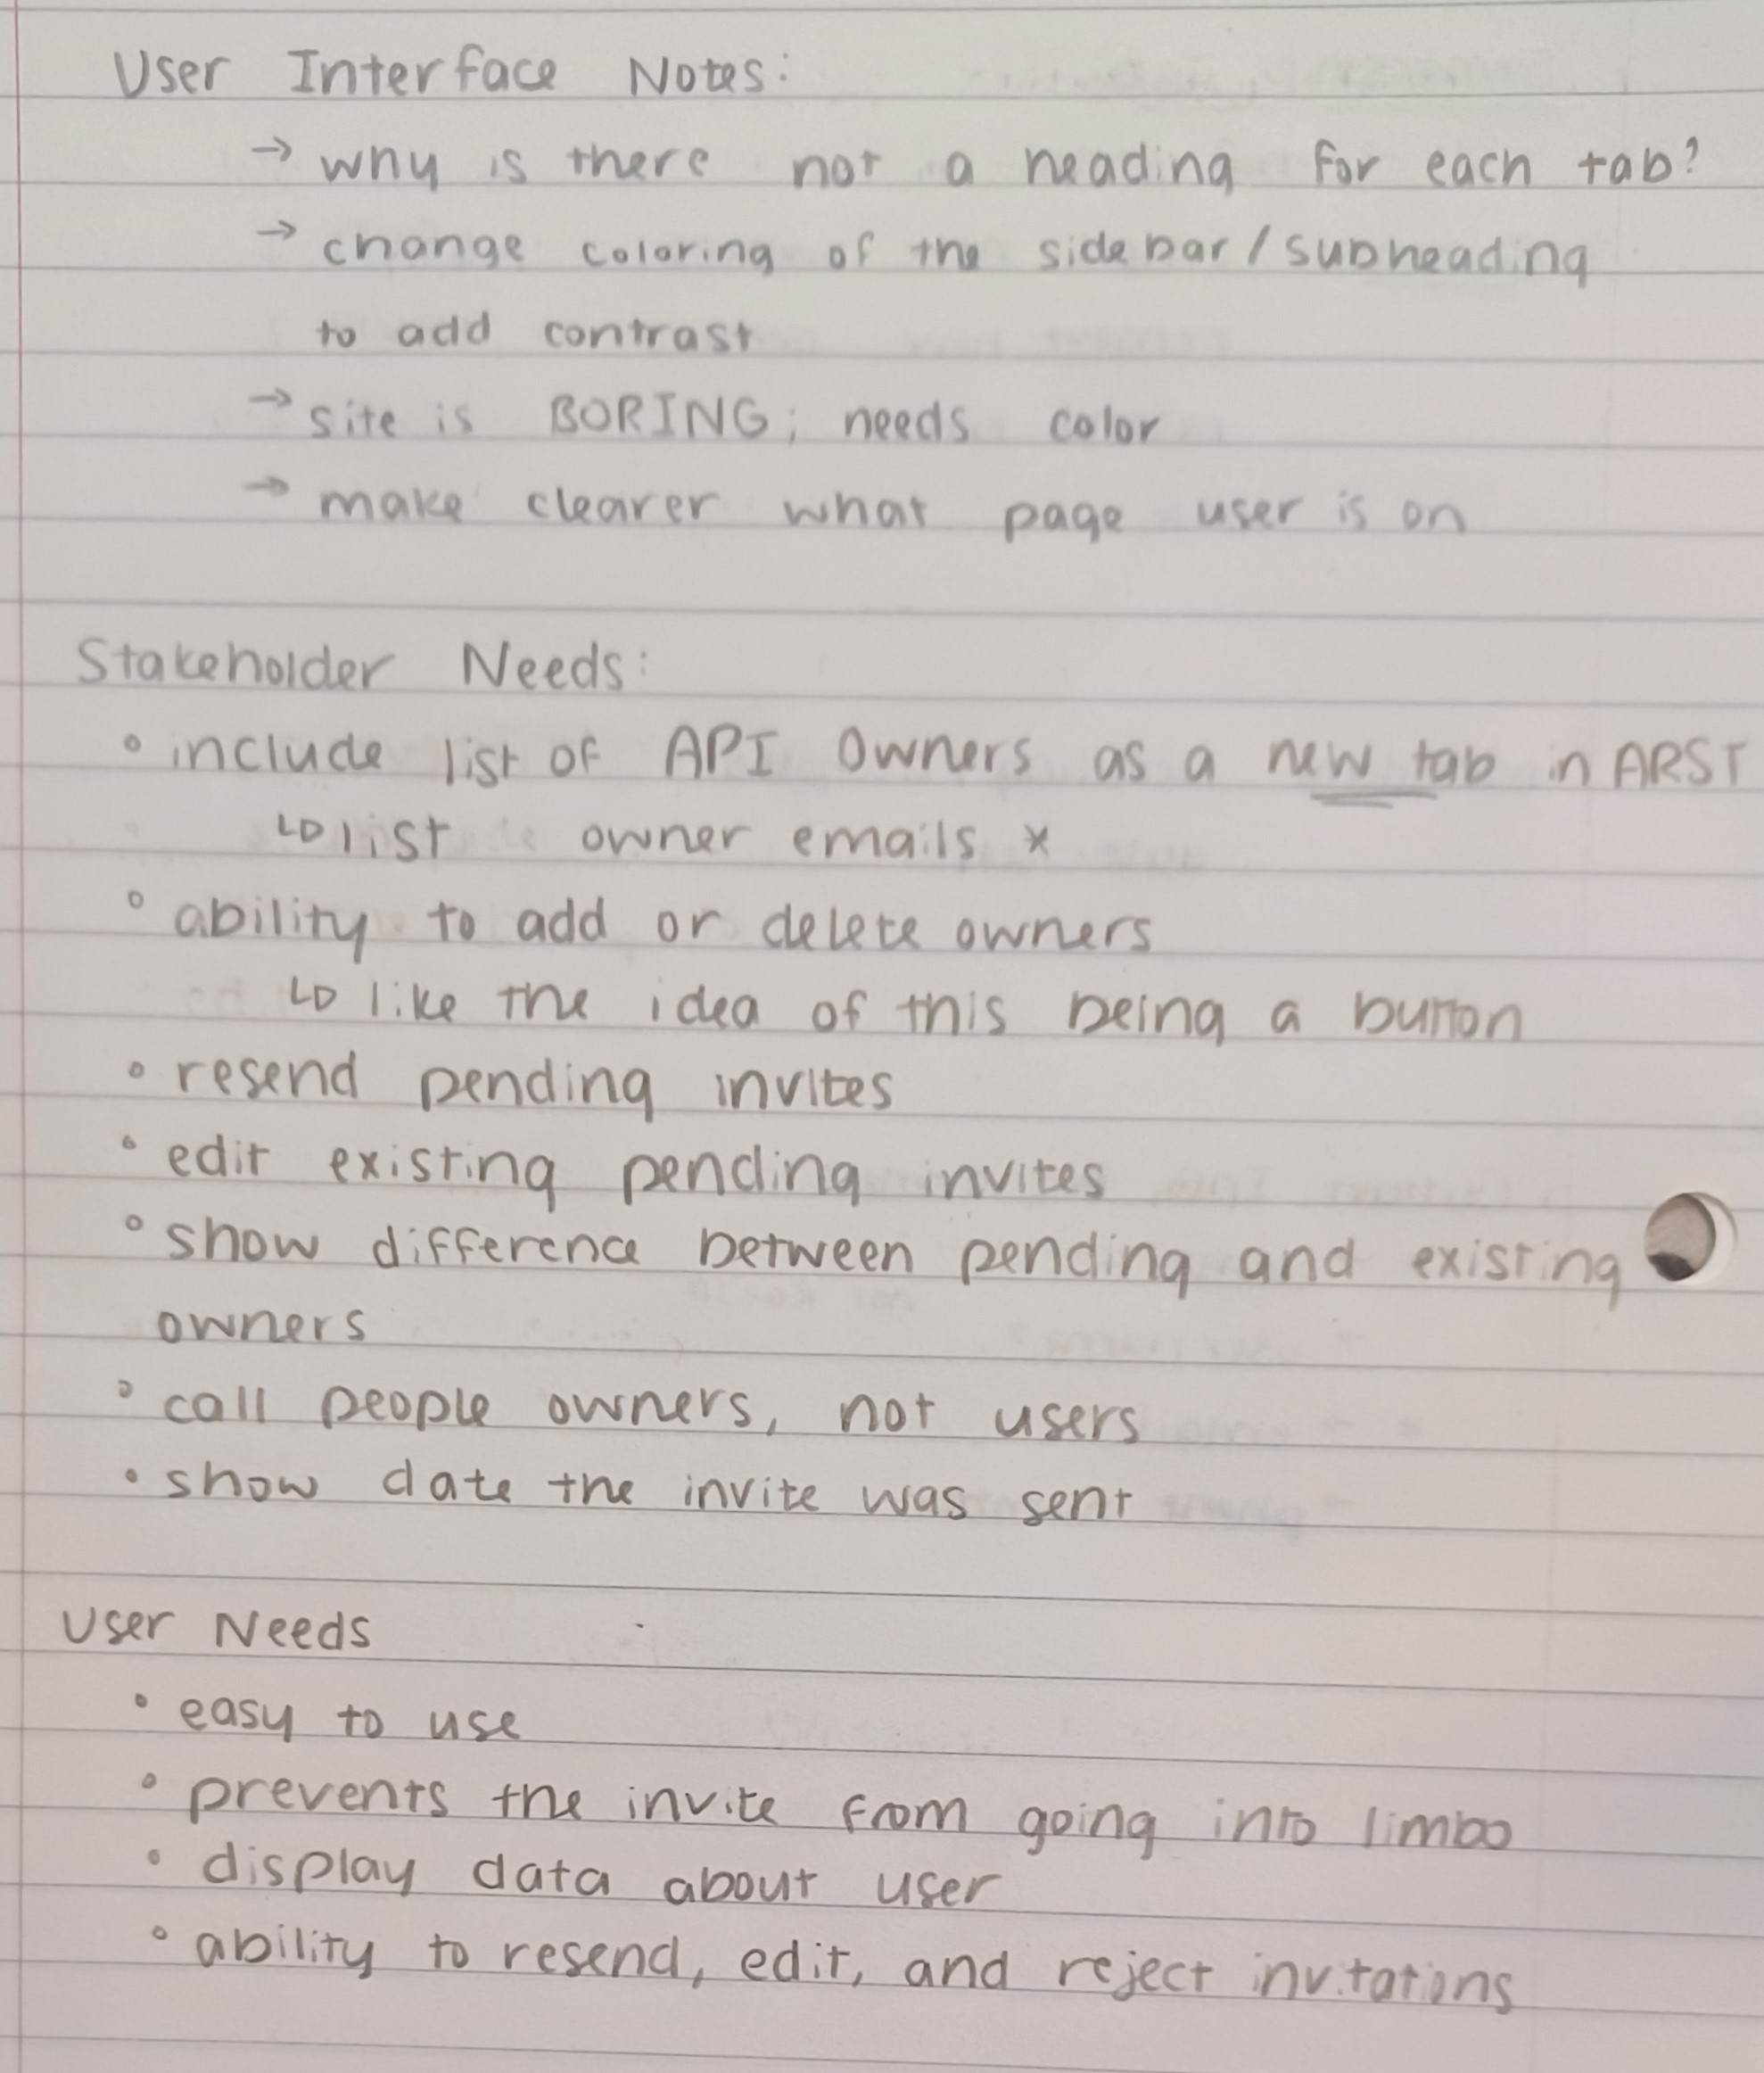 User Interface Notes:
→ why is there not a heading for each tab?
→ change coloring of the sidebar/subheading
to add contrast
→ site is BORING; needs color
→ make clearer what page user is on
Stakeholder Needs:
• include list of API Owners as a new tab in ARST
↳ list owner emails *
• ability to add or delete owners
↳ like the idea of this being a button
• resend pending invites
• edit existing pending invites
• show difference between pending and existing
owners
• call people owners, not users
• show date the invite was sent
User Needs
• easy to use
• prevents the invite from going into limbo
• display data about user
• ability to resend, edit, and reject invitations